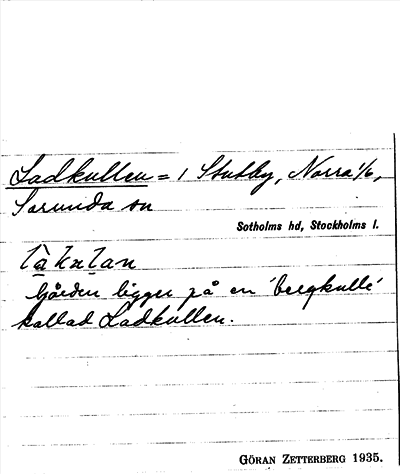 Ladkullen = 1 Stutby, Norra 1/6,
Sorunda sn
Sotholms hd, Stockholms l.
Gården ligger på en 'bergkulle'
kallad Ladkullen.
GÖRAN ZETTERBERG 1935.